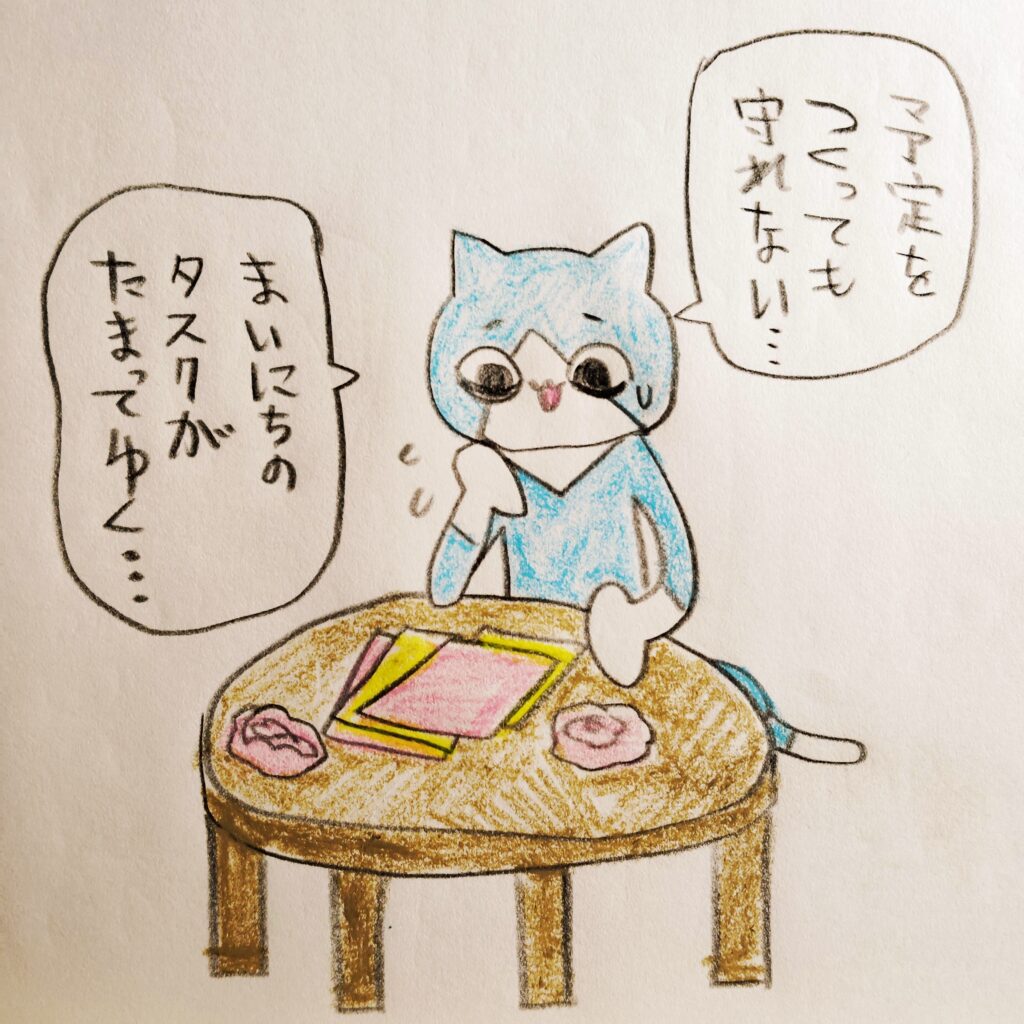 予定を
つくっても
守れない…
まいにちの
タスクが
たまってゆく…